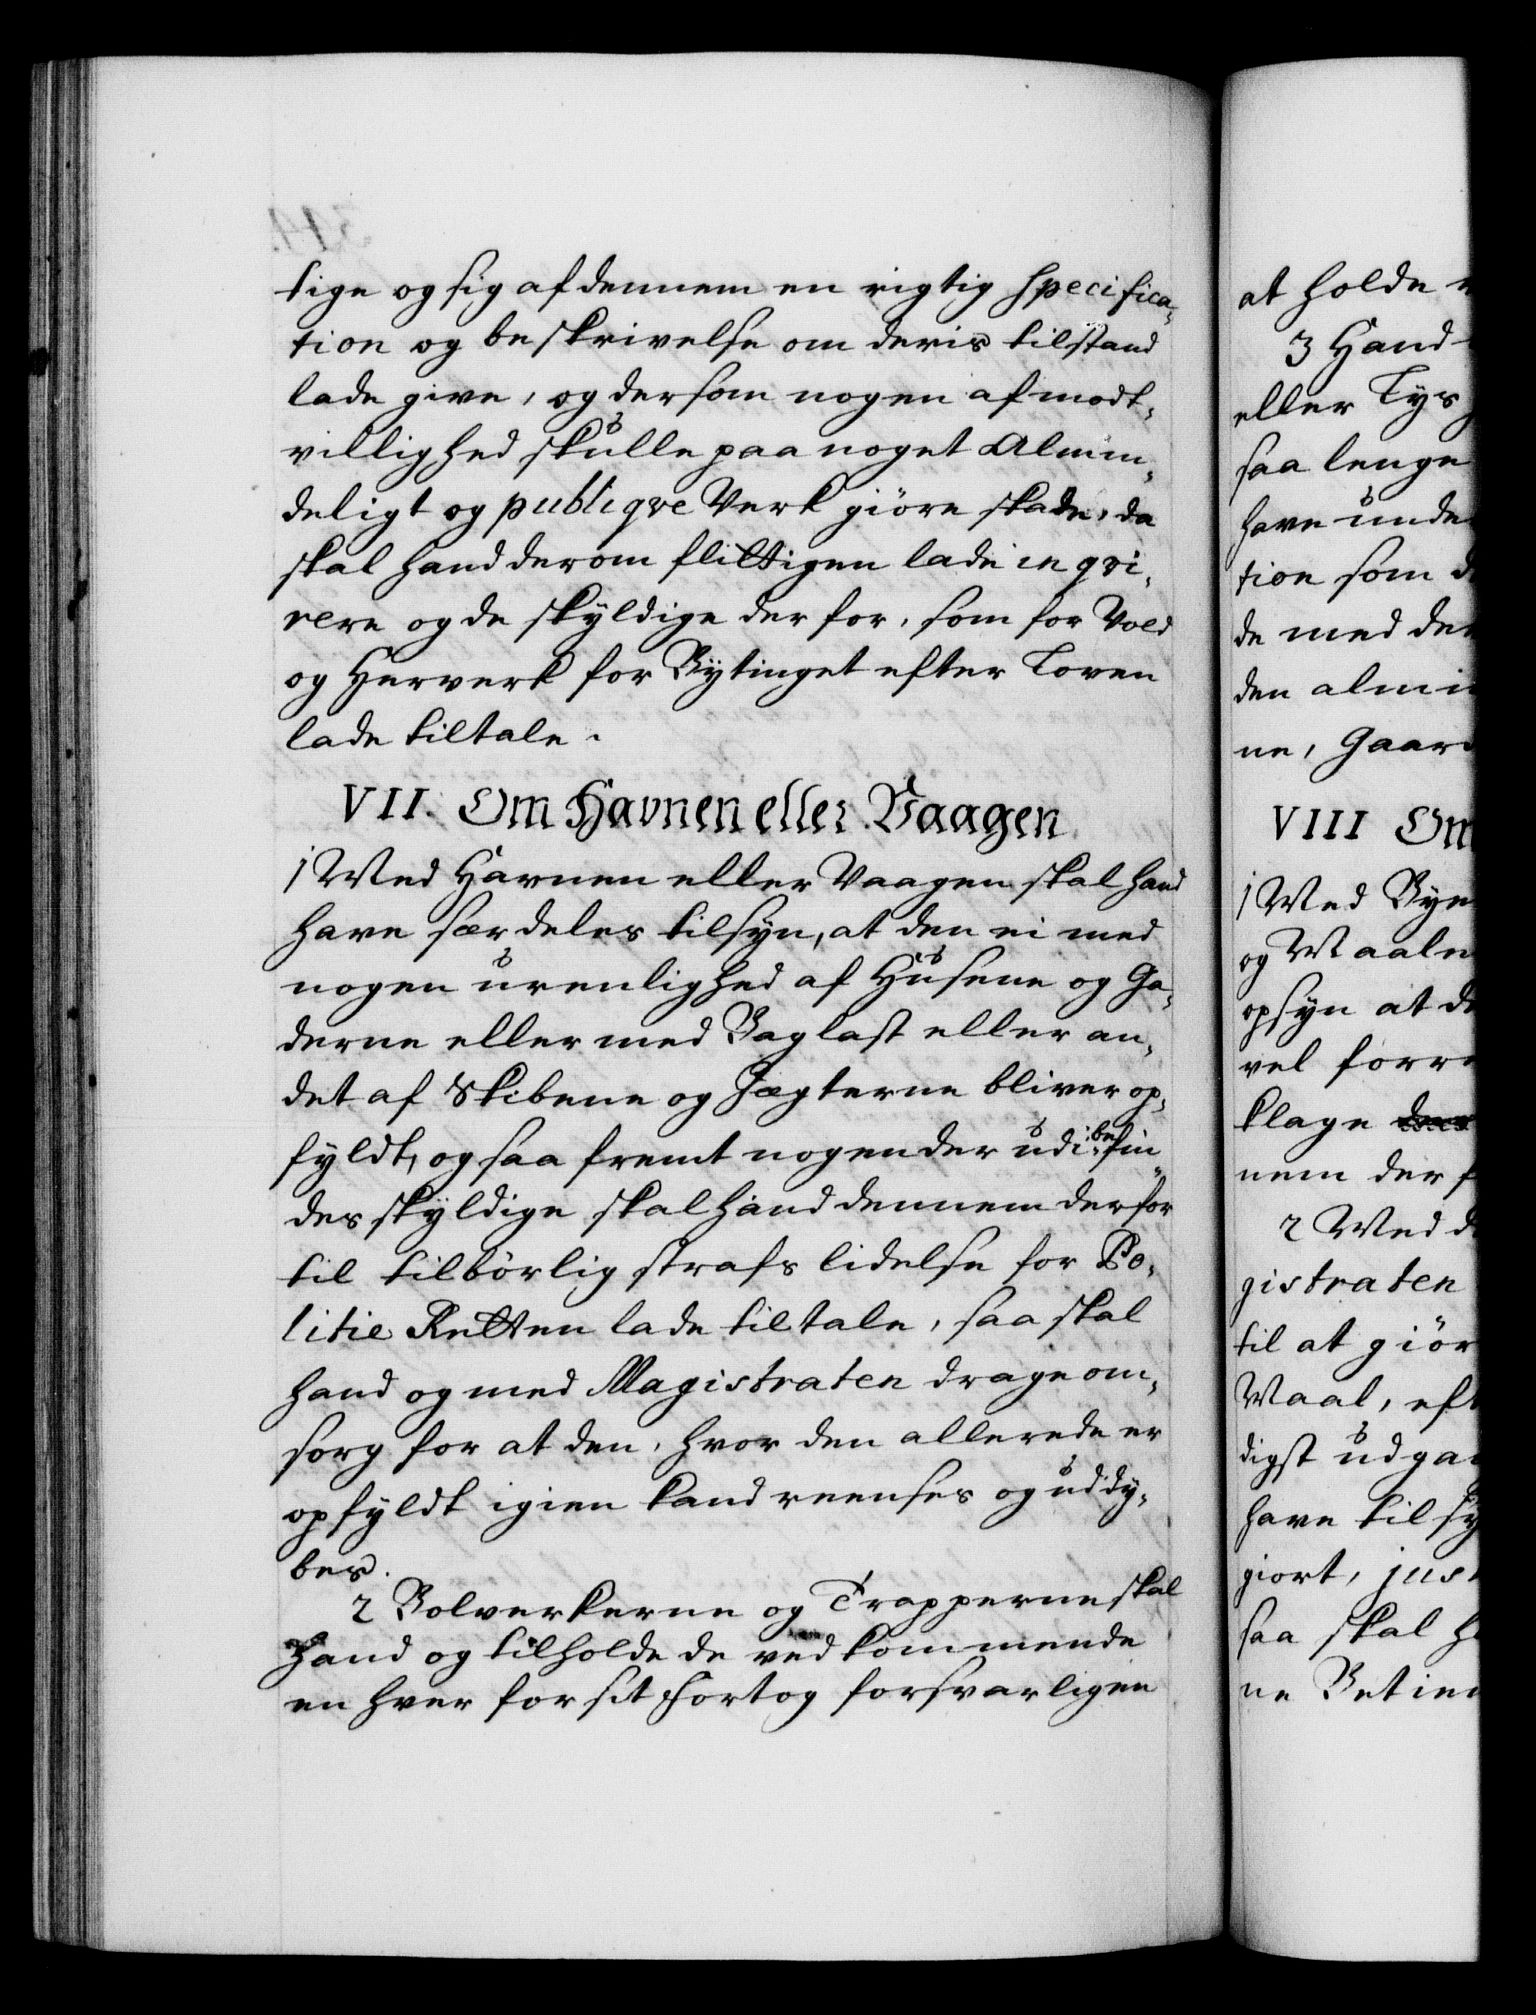 tige og sig af dennem en rigtig specifica-
tion og beskrivelse om deris tilstand
lade give, og dersom nogen af modt-
villighed skulle paa noget Almin-
deligt og publiqve Verk giöre skade, da
skal hand derom flittigen lade inqvi-
rere og de skyldige der for, som for Vold
og Herverk for Bytinget efter Loven
lade tiltale.
VII. Om Havnen eller Vaagen
1 Med Havnen eller Vaagen skal hand
have særdeles tilsyn, at den ei med
nogen urenlighed af Husene og Ga-
derne eller med Baglast eller an-
det af Skibene og Jægterne bliver op-
fyldt, og saa fremt nogen der udi befin-
des skyldige skal hand dennem derfor
til tilbörlig strafs lidelse for Po-
litie Retten lade tiltale, saa skal
hand og med Magistraten drage om-
sorg for at den, hvor den allerede er
opfyldt igien kand reenses og uddy-
bes.
2 Bolverkerne og Trapperne skal
hand og tilholde de vedkommende
en hver for sit Fortog forsvarligen
at holde
3 Hand
eller Tys
saa lenge
have unde
tion som d
de med de
den almi
ne, Gaar
VIII Om
1 Med Bye
og Maale
opsyn at d
vel forre
klage
nem der f
2 Med d
gistraten
til at giör
Maal, eft
digst udga
have tilsy
giort, jus
saa skal h
ne Betien